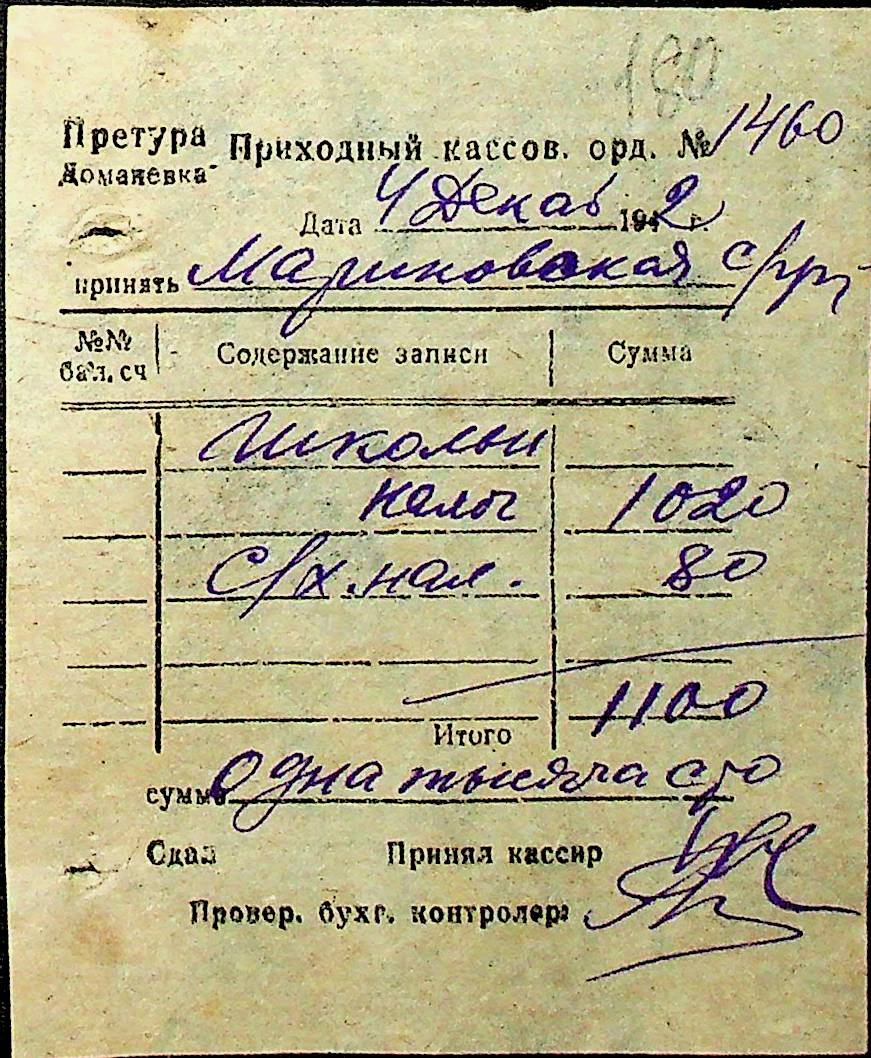 180
Претура Приходный кассов. орд. № 1460
Доманевка
Дата 4 Декаб 1942 г.
принять Мариновская с/
№№ бал. сч Содержание записи Сумма
Школьн
налог 1020
С/х. нал. 80
Итого 1100
сумма Одна тысяча сто
Сдал Принял кассир
Провер. бухг. контролер: